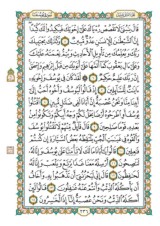 قَالَ يَٰبُنَيَّ لَا تَقْصُصْ رُءْيَاكَ عَلَىٰٓ إِخْوَتِكَ فَيَكِيدُوا۟ لَكَ كَيْدًا
إِنَّ ٱلشَّيْطَٰنَ لِلْإِنسَٰنِ عَدُوٌّ مُّبِينٌ ٥ وَكَذَٰلِكَ يَجْتَبِيكَ رَبُّكَ
وَيُعَلِّمُكَ مِن تَأْوِيلِ ٱلْأَحَادِيثِ وَيُتِمُّ نِعْمَتَهُۥ عَلَيْكَ
وَعَلَىٰٓ ءَالِ يَعْقُوبَ كَمَآ أَتَمَّهَا عَلَىٰٓ أَبَوَيْكَ مِن قَبْلُ إِبْرَٰهِيمَ
وَإِسْحَٰقَ إِنَّ رَبَّكَ عَلِيمٌ حَكِيمٌ ٦ لَّقَدْ كَانَ فِي يُوسُفَ وَإِخْوَتِهِۦٓ
ءَايَٰتٌ لِّلسَّآئِلِينَ ٧ إِذْ قَالُوا۟ لَيُوسُفُ وَأَخُوهُ أَحَبُّ إِلَىٰٓ
أَبِينَا مِنَّا وَنَحْنُ عُصْبَةٌ إِنَّ أَبَانَا لَفِي ضَلَٰلٍ مُّبِينٍ ٨
ٱقْتُلُوا۟ يُوسُفَ أَوِ ٱطْرَحُوهُ أَرْضًا يَخْلُ لَكُمْ وَجْهُ أَبِيكُمْ
وَتَكُونُوا۟ مِنۢ بَعْدِهِۦ قَوْمًا صَٰلِحِينَ ٩ قَالَ قَآئِلٌ مِّنْهُمْ لَا تَقْتُلُوا۟ يُوسُفَ
وَأَلْقُوهُ فِي غَيَٰبَتِ ٱلْجُبِّ يَلْتَقِطْهُ بَعْضُ ٱلسَّيَّارَةِ إِن كُنتُمْ
فَٰعِلِينَ ١٠ قَالُوا۟ يَٰٓأَبَانَا مَا لَكَ لَا تَأْمَ۫نَّا عَلَىٰ يُوسُفَ وَإِنَّا لَهُۥ
لَنَٰصِحُونَ ١١ أَرْسِلْهُ مَعَنَا غَدًا يَرْتَعْ وَيَلْعَبْ وَإِنَّا لَهُۥ
لَحَٰفِظُونَ ١٢ قَالَ إِنِّي لَيَحْزُنُنِيٓ أَن تَذْهَبُوا۟ بِهِۦ وَأَخَافُ
أَن يَأْكُلَهُ ٱلذِّئْبُ وَأَنتُمْ عَنْهُ غَٰفِلُونَ ١٣ قَالُوا۟ لَئِنْ
أَكَلَهُ ٱلذِّئْبُ وَنَحْنُ عُصْبَةٌ إِنَّآ إِذًا لَّخَٰسِرُونَ ١٤
٢٣٦